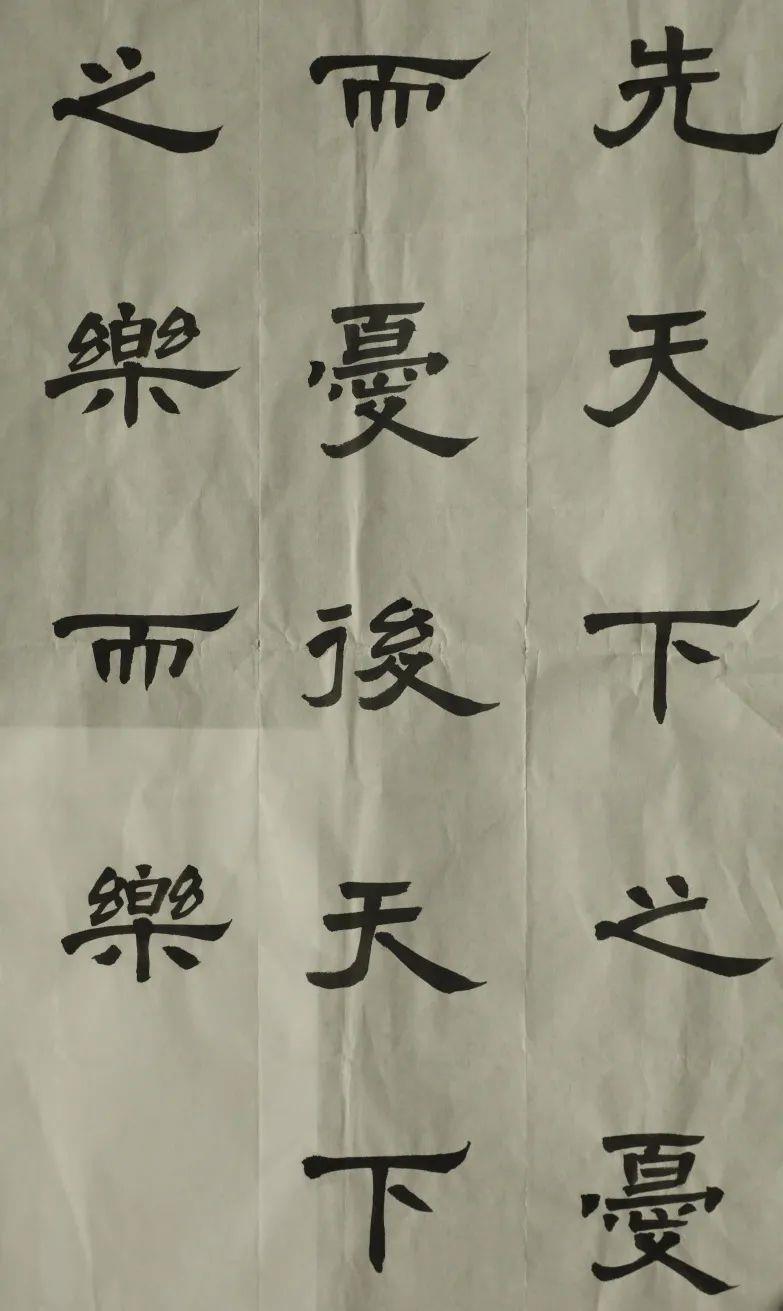 先天下之憂
而憂後天下
之樂而樂